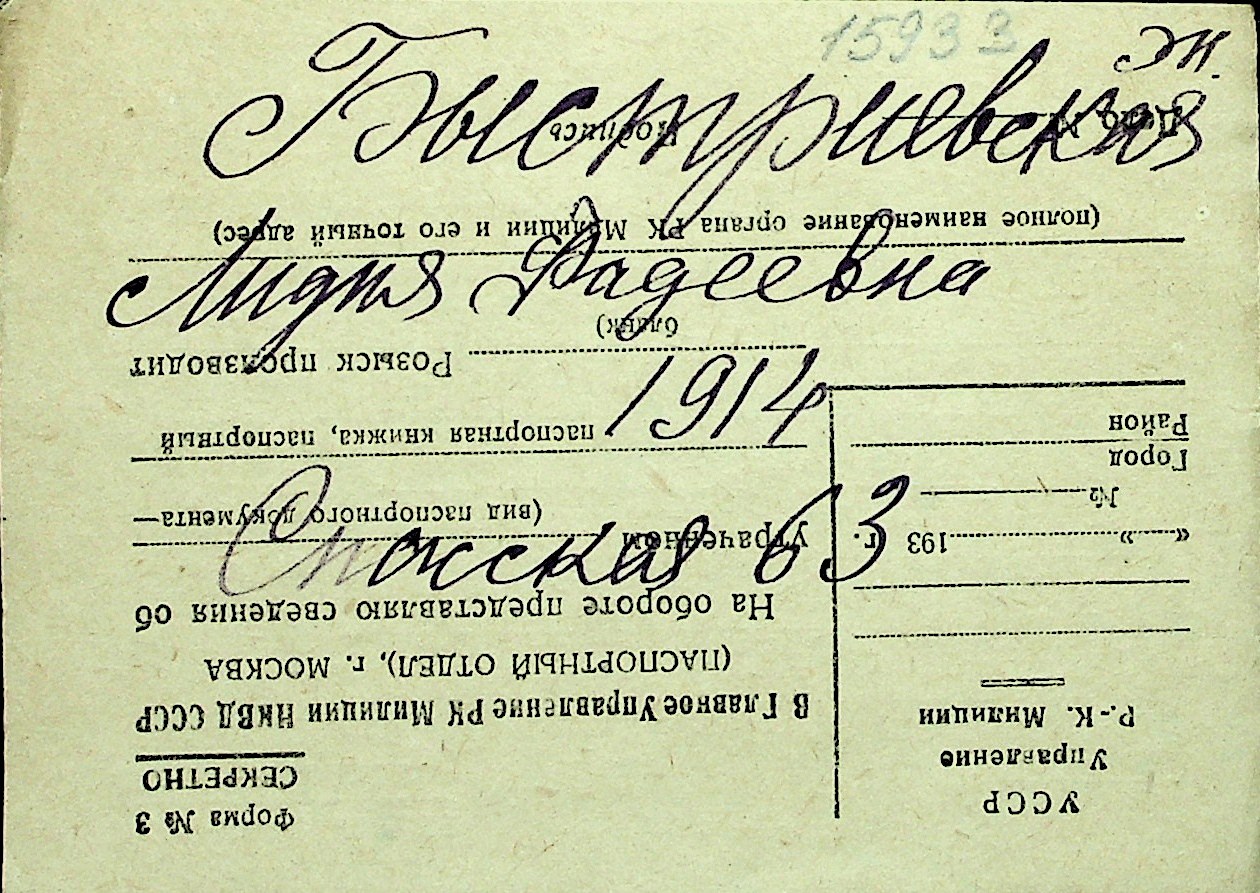 15933
эк.
Быстриевская
Лидия Фадеевна
1914
63
УССР
Управление
Р.-К. Милиции
" " 193 г.
№
Город
Район
Форма № 3
СЕКРЕТНО
В Главное Управление РК Милиции НКВД СССР
(ПАСПОРТНЫЙ ОТДЕЛ), г. МОСКВА
На обороте представляю сведения об
утраченном
(вид паспортного документа—
паспортная книжка, паспортный
бланк)
Розыск производит
(полное наименование органа РК Милиции и его точный адрес)
Дело № Подпись